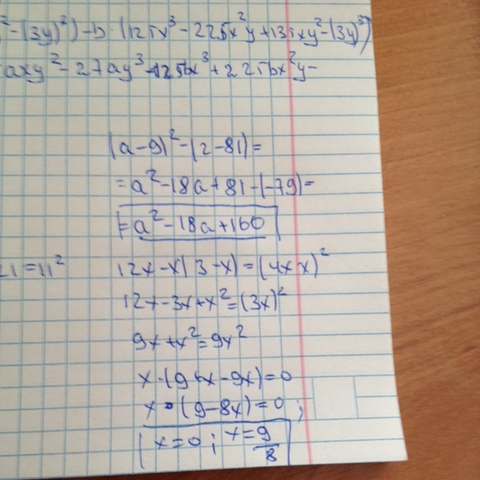 ²-(3y)²)-b·(125x³-225x²y+135xy²-(3y)³)
axy²-27ay³-125bx³+225bx²y-
(a-9)²-(2-81)=
=a²-18a+81-(-79)=
=a²-18a+160
21=11²
12x-x(3-x)=(4x-x)²
12x-3x+x²=(3x)²
9x+x²=9x²
x·(9+x-9x)=0
x·(9-8x)=0;
x=0; x=9/8